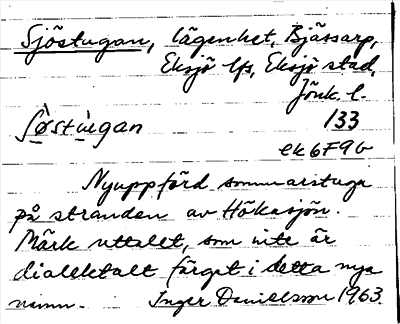 Sjöstugan, lägenhet, Bjässarp,
Eksjö lfs, Eksjö stad,
Jönk. l.
133
ek 6F9b
Nyuppförd sommarstuga
på stranden av Hökasjön.
Märk uttalet, som inte är
dialektalt färgat i detta nya
namn. Inger Danielsson 1963.